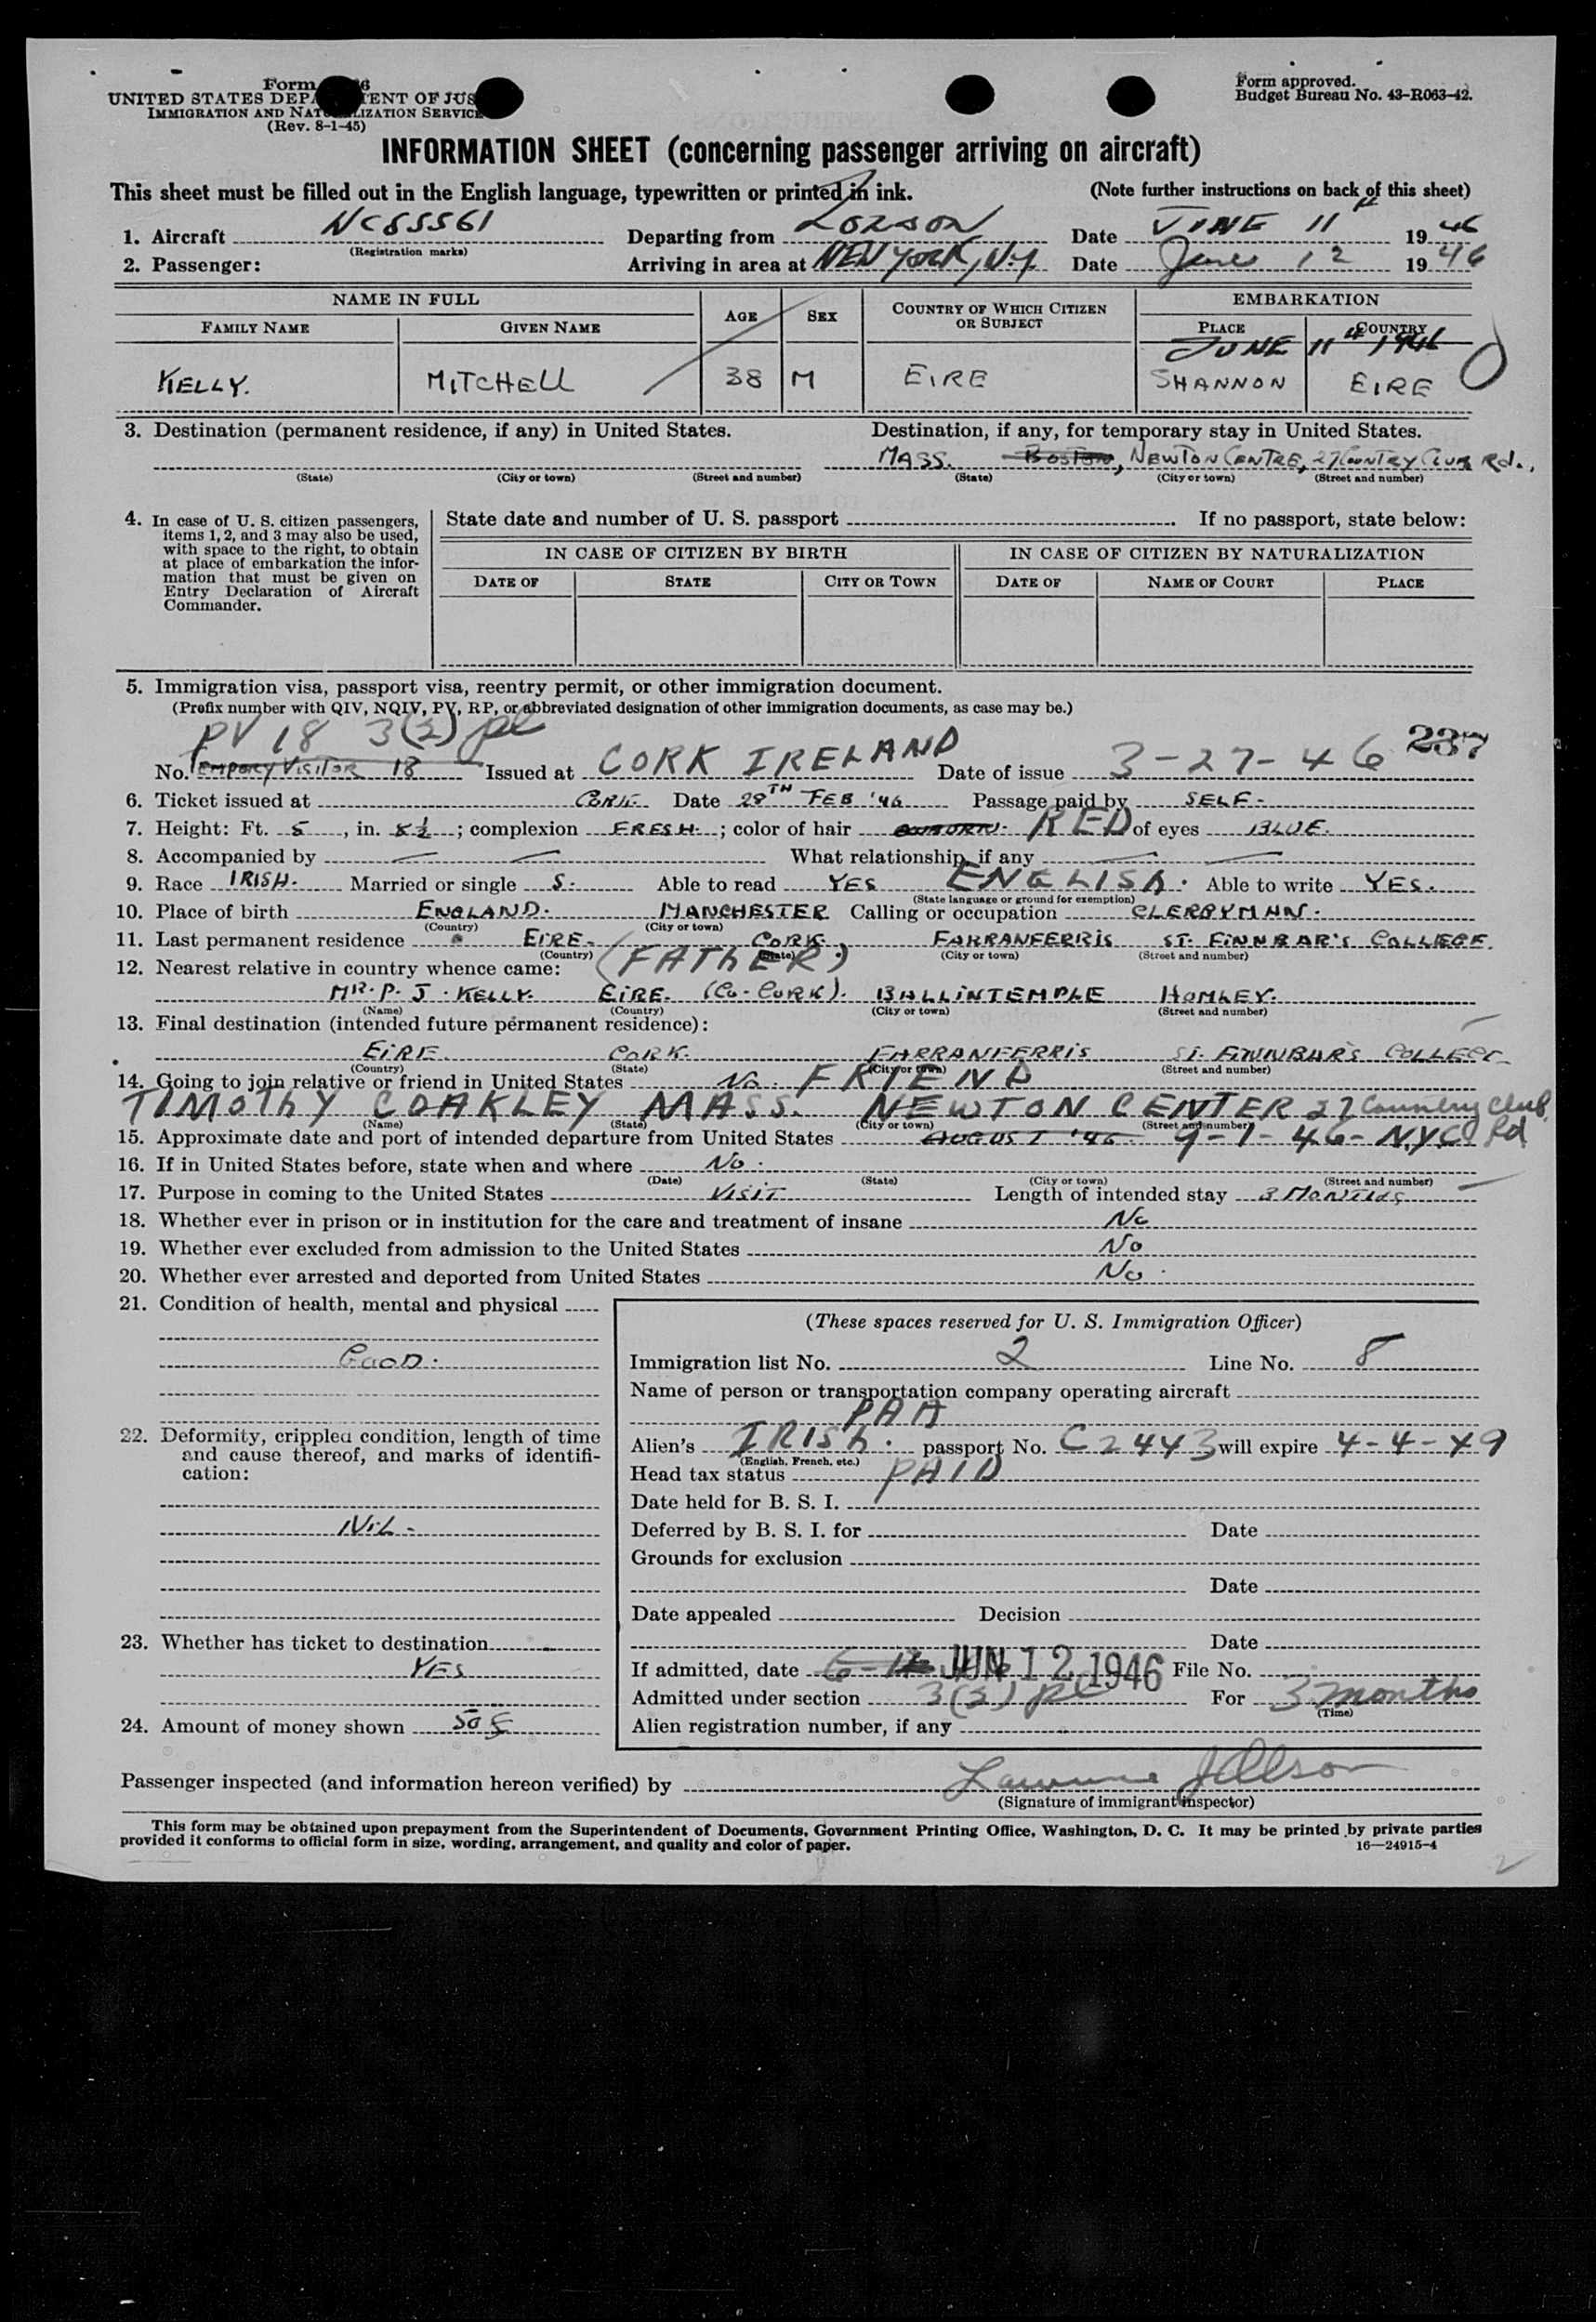 Form
UNITED STATES DEPA ENT OF JUS
IMMIGRATION AND NAT LIZATION SERVICE
(Rev. 8-1-45)
Form approved.
Budget Bureau No. 43-R063-42.
INFORMATION SHEET (concerning passenger arriving on aircraft)
This sheet must be filled out in the English language, typewritten or printed in ink. (Note further instructions on back of this sheet)
1. Aircraft NC88861 Departing from LONDON Date JUNE 11 1946
(Registration marks)
2. Passenger: Arriving in area at NEW YORK, N.Y. Date June 12 1946
NAME IN FULL AGE SEX COUNTRY OF WHICH CITIZEN OR SUBJECT EMBARKATION
FAMILY NAME GIVEN NAME PLACE COUNTRY
JUNE 11th 1946
KELLY. MITCHELL 38 M EIRE SHANNON EIRE
3. Destination (permanent residence, if any) in United States. Destination, if any, for temporary stay in United States.
MASS. BOSTON, NEWTON CENTRE, 27 COUNTRY CLUB Rd.,
(State) (City or town) (Street and number) (State) (City or town) (Street and number)
4. In case of U. S. citizen passengers, items 1, 2, and 3 may also be used, with space to the right, to obtain at place of embarkation the information that must be given on Entry Declaration of Aircraft Commander.
State date and number of U. S. passport If no passport, state below:
IN CASE OF CITIZEN BY BIRTH IN CASE OF CITIZEN BY NATURALIZATION
DATE OF STATE CITY OR TOWN DATE OF NAME OF COURT PLACE
5. Immigration visa, passport visa, reentry permit, or other immigration document.
(Prefix number with QIV, NQIV, PV, RP, or abbreviated designation of other immigration documents, as case may be.)
PV 18 3(2) pl
237
No. TEMPORY VISITOR 18 Issued at CORK IRELAND Date of issue 3-27-46
6. Ticket issued at CORK. Date 28TH FEB '46 Passage paid by SELF-
7. Height: Ft. 5, in. 8½; complexion FRESH.; color of hair AUBURN. RED of eyes BLUE.
8. Accompanied by What relationship, if any
9. Race IRISH. Married or single S. Able to read YES ENGLISH. Able to write YES.
(State language or ground for exemption)
10. Place of birth ENGLAND. MANCHESTER Calling or occupation CLERGYMAN.
(Country) (City or town)
11. Last permanent residence EIRE. CORK. FARRANFERRIS ST. FINNBAR'S COLLEGE.
(Country) (State) (City or town) (Street and number)
12. Nearest relative in country whence came: (FATHER)
MR. P. J. KELLY. EIRE. (CO. CORK). BALLINTEMPLE HOMLEY.
(Name) (Country) (City or town) (Street and number)
13. Final destination (intended future permanent residence):
EIRE. CORK. FARRANFERRIS ST. FINNBAR'S COLLEGE
(Country) (State) (City or town) (Street and number)
14. Going to join relative or friend in United States No. FRIEND
TIMOTHY COAKLEY MASS. NEWTON CENTER 27 Country Club Rd
(Name) (State) (City or town) (Street and number)
15. Approximate date and port of intended departure from United States AUGUST '46. 9-1-46- N.Y.C
16. If in United States before, state when and where No.
(Date) (State) (City or town) (Street and number)
17. Purpose in coming to the United States VISIT Length of intended stay 3 MONTHS
18. Whether ever in prison or in institution for the care and treatment of insane No
19. Whether ever excluded from admission to the United States No
20. Whether ever arrested and deported from United States No.
21. Condition of health, mental and physical
GOOD.
22. Deformity, crippled condition, length of time and cause thereof, and marks of identification:
NIL-
23. Whether has ticket to destination
YES
24. Amount of money shown
(These spaces reserved for U. S. Immigration Officer)
Immigration list No. 2 Line No. 8
Name of person or transportation company operating aircraft
PAA
Alien's IRISH. passport No. C2443 will expire 4-4-49
(English, French, etc.)
Head tax status PAID
Date held for B. S. I.
Deferred by B. S. I. for Date
Grounds for exclusion
Date
Date appealed Decision
Date
If admitted, date JUN 12 1946 File No.
Admitted under section 3(2) pl For 3 months
(Time)
Alien registration number, if any
Passenger inspected (and information hereon verified) by Lawrence J Olson
(Signature of immigrant inspector)
This form may be obtained upon prepayment from the Superintendent of Documents, Government Printing Office, Washington, D. C. It may be printed by private parties
provided it conforms to official form in size, wording, arrangement, and quality and color of paper. 16—24915-4
2